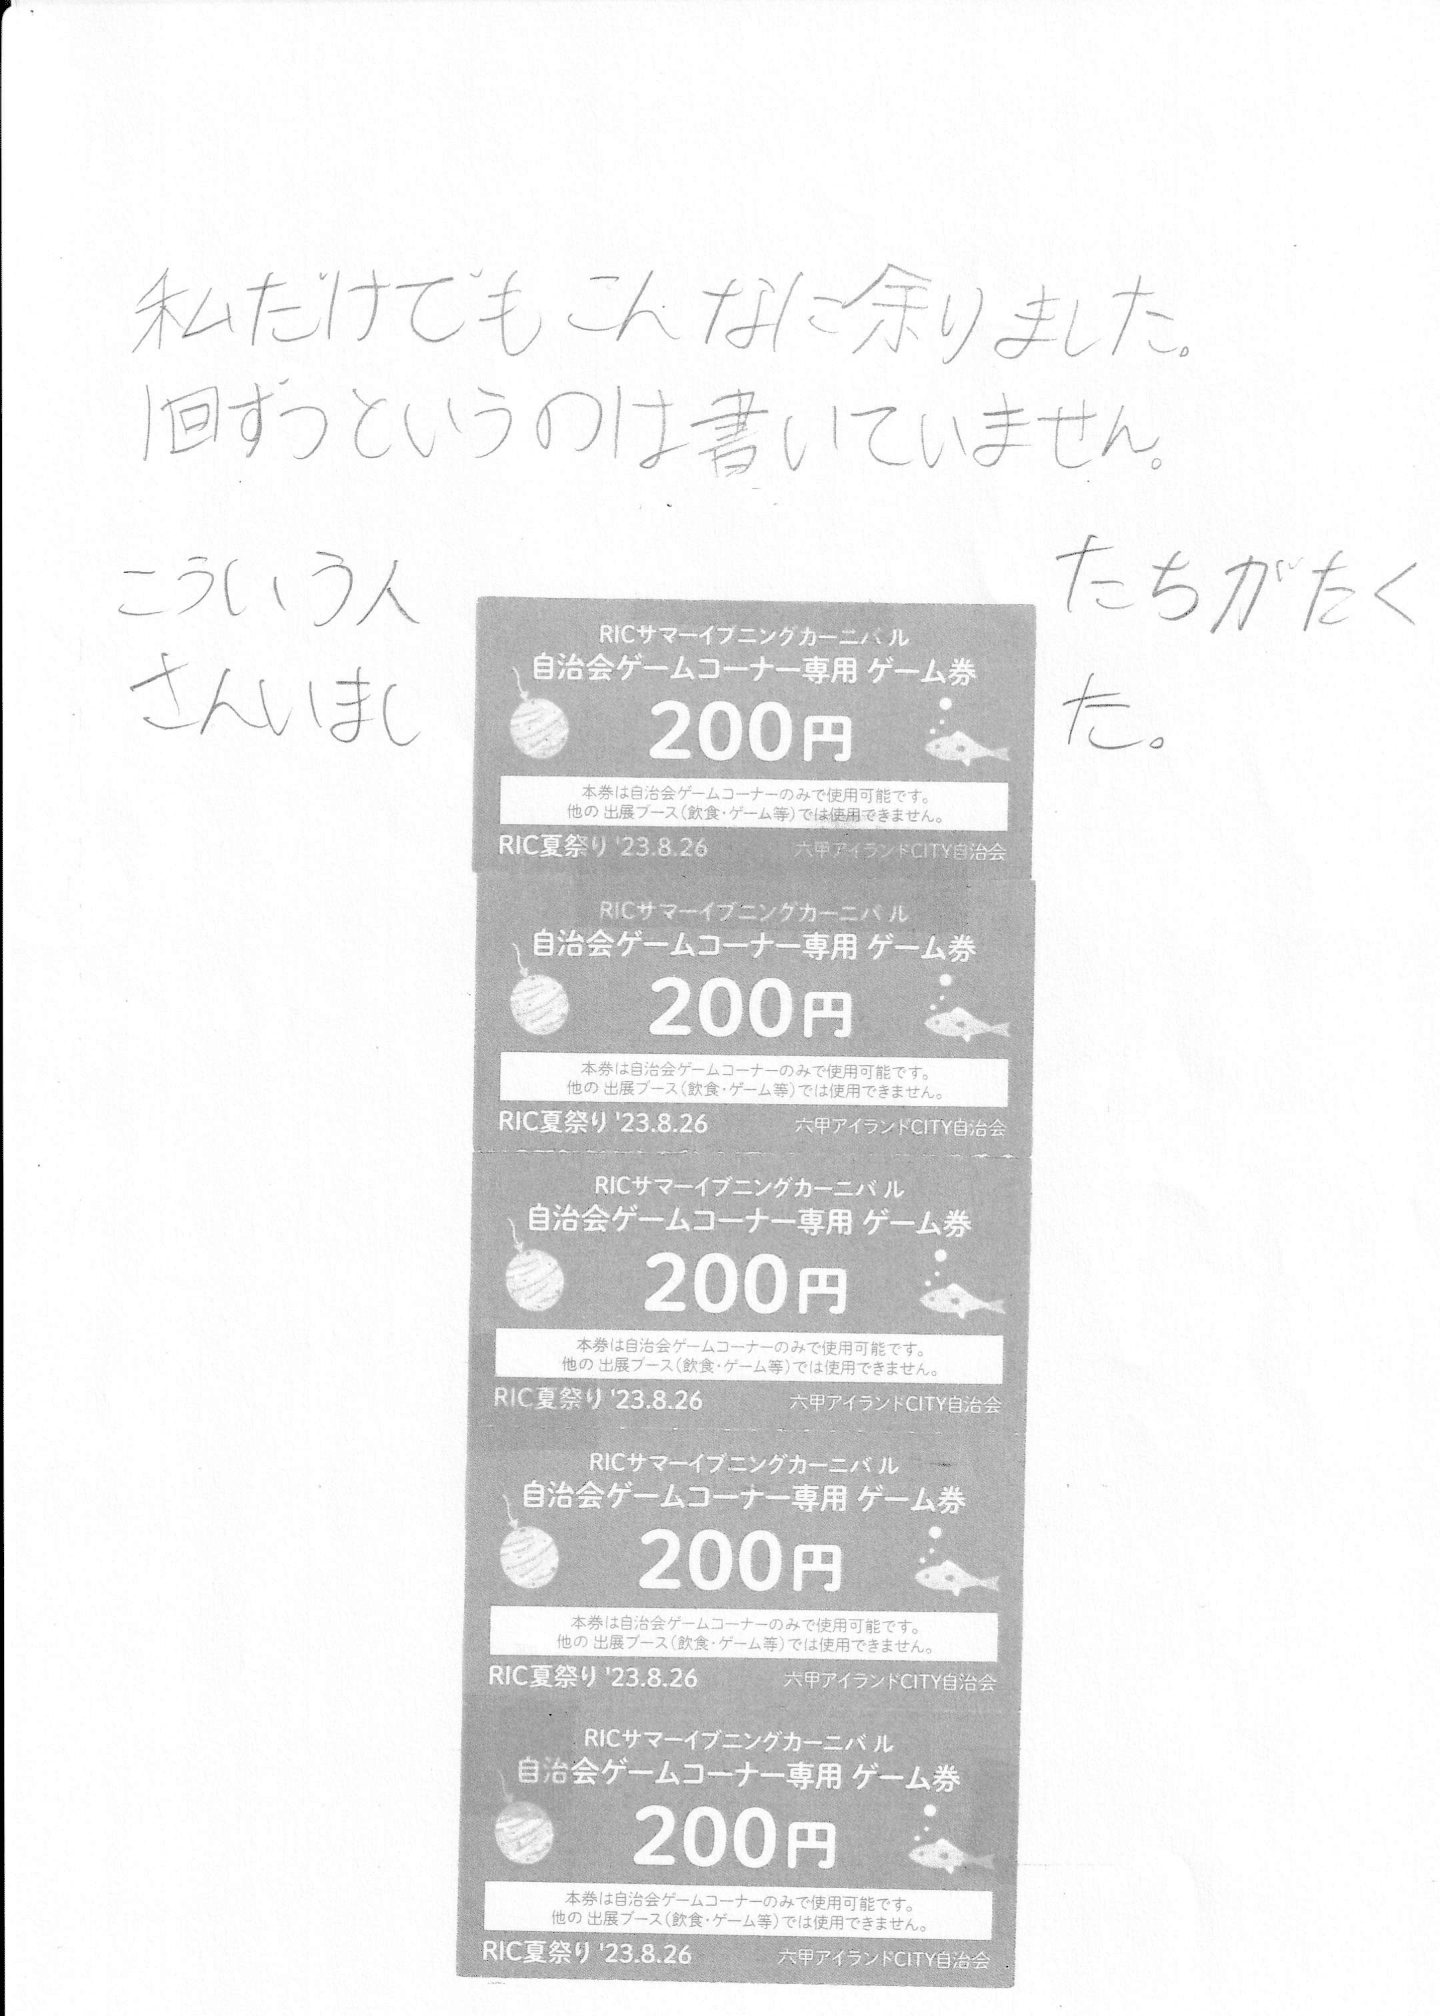 私だけでもこんなに余りました。
1回ずつというのは書いていません。
こういう人たちがたく
さんいました。
RICサマーイブニングカーニバル
自治会ゲームコーナー専用 ゲーム券
200円
本券は自治会ゲームコーナーのみで使用可能です。
他の 出展ブース(飲食・ゲーム等)では使用できません。
RIC夏祭り '23.8.26 六甲アイランドCITY自治会
RICサマーイブニングカーニバル
自治会ゲームコーナー専用 ゲーム券
200円
本券は自治会ゲームコーナーのみで使用可能です。
他の 出展ブース(飲食・ゲーム等)では使用できません。
RIC夏祭り '23.8.26 六甲アイランドCITY自治会
RICサマーイブニングカーニバル
自治会ゲームコーナー専用 ゲーム券
200円
本券は自治会ゲームコーナーのみで使用可能です。
他の 出展ブース(飲食・ゲーム等)では使用できません。
RIC夏祭り '23.8.26 六甲アイランドCITY自治会
RICサマーイブニングカーニバル
自治会ゲームコーナー専用 ゲーム券
200円
本券は自治会ゲームコーナーのみで使用可能です。
他の 出展ブース(飲食・ゲーム等)では使用できません。
RIC夏祭り '23.8.26 六甲アイランドCITY自治会
RICサマーイブニングカーニバル
自治会ゲームコーナー専用 ゲーム券
200円
本券は自治会ゲームコーナーのみで使用可能です。
他の 出展ブース(飲食・ゲーム等)では使用できません。
RIC夏祭り '23.8.26 六甲アイランドCITY自治会